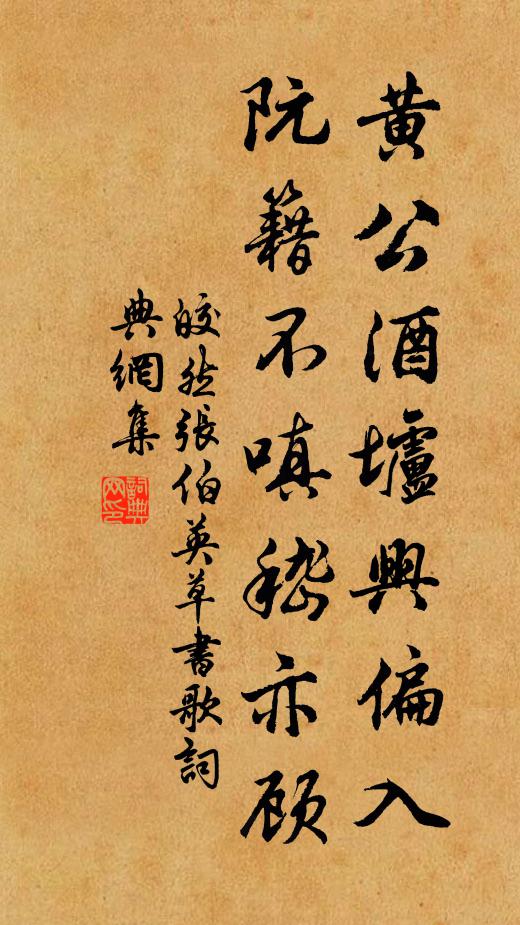 黄公酒壚興偏入
阮籍不嗔嵇亦顾
皎然張伯英草書歌詞
典網集
詞典网印